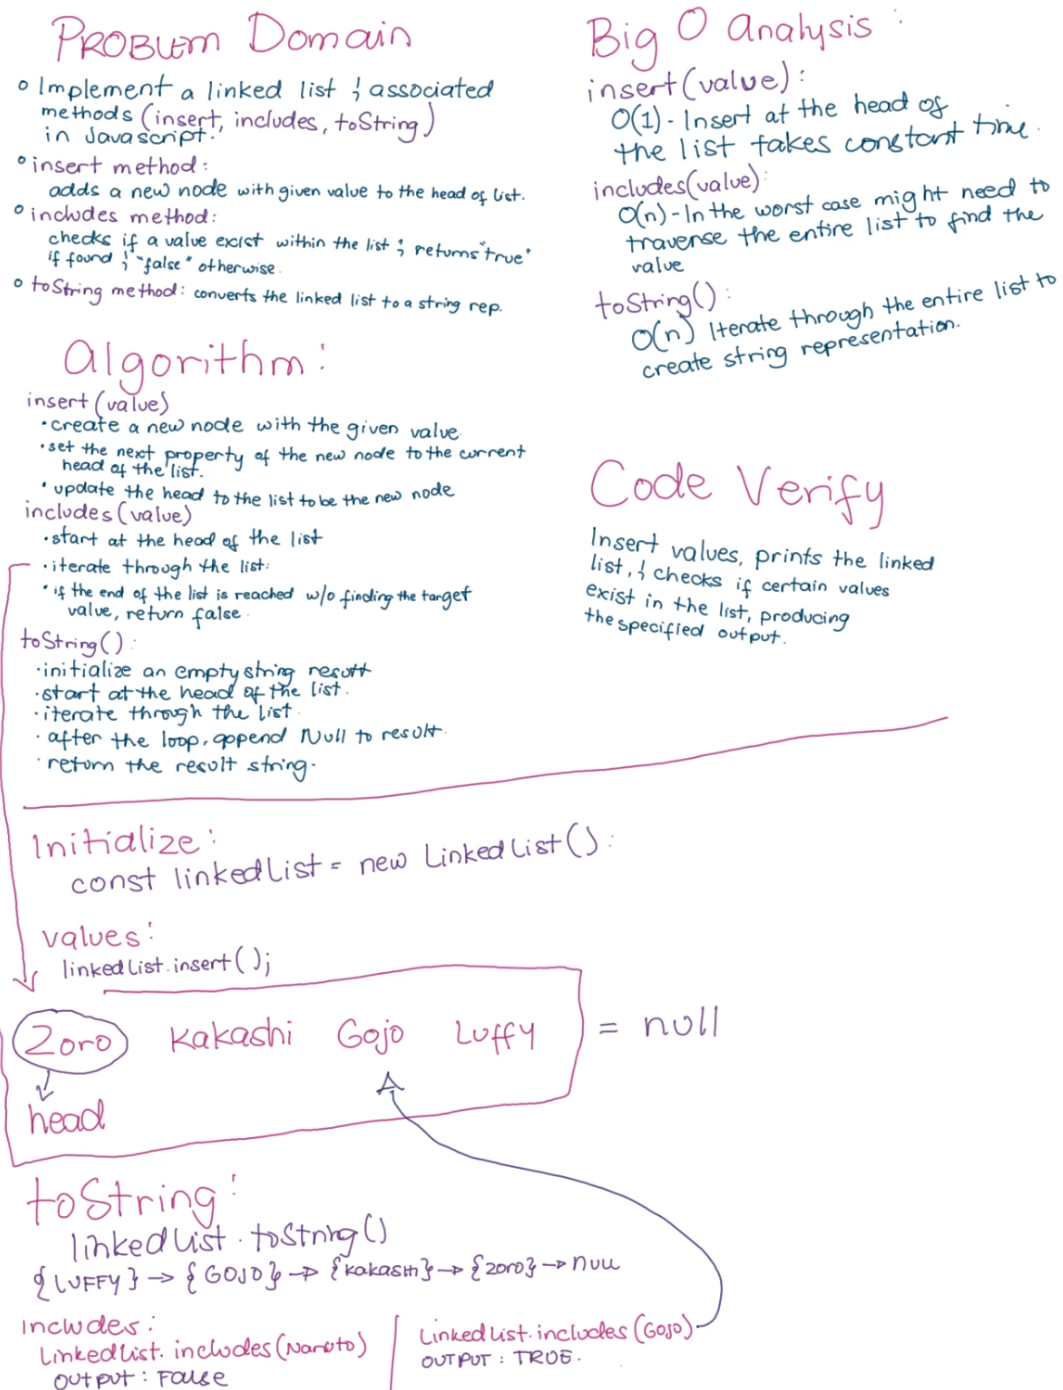 PROBLEM Domain
o Implement a linked list & associated
methods (insert, includes, toString)
in Javascript.
o insert method:
adds a new node with given value to the head of list.
o includes method:
checks if a value exist within the list & returns "true"
if found & "false" otherwise.
o toString method: converts the linked list to a string rep.
Algorithm:
insert (value)
• create a new node with the given value
• set the next property of the new node to the current
head of the list.
• update the head to the list to be the new node
includes (value)
• start at the head of the list
• iterate through the list:
• if the end of the list is reached w/o finding the target
value, return false.
toString():
• initialize an empty string result
• start at the head of the list.
• iterate through the list
• after the loop, append Null to result.
• return the result string.
Big O Analysis:
insert (value):
O(1) - Insert at the head of
the list takes constant time.
includes(value):
O(n) - In the worst case might need to
traverse the entire list to find the
value
toString():
O(n) Iterate through the entire list to
create string representation.
Code Verify
Insert values, prints the linked
list, & checks if certain values
exist in the list, producing
the specified output.
Initialize:
const linkedList = new LinkedList():
values:
linkedList.insert();
Zoro Kakashi Gojo Luffy = null
head
toString:
linkedList.toString()
{LUFFY} → {GOJO} → {kakashi} → {zoro} → null
includes:
LinkedList.includes(Naruto)
OUTPUT: False
LinkedList.includes(GOJO)
OUTPUT: TRUE.